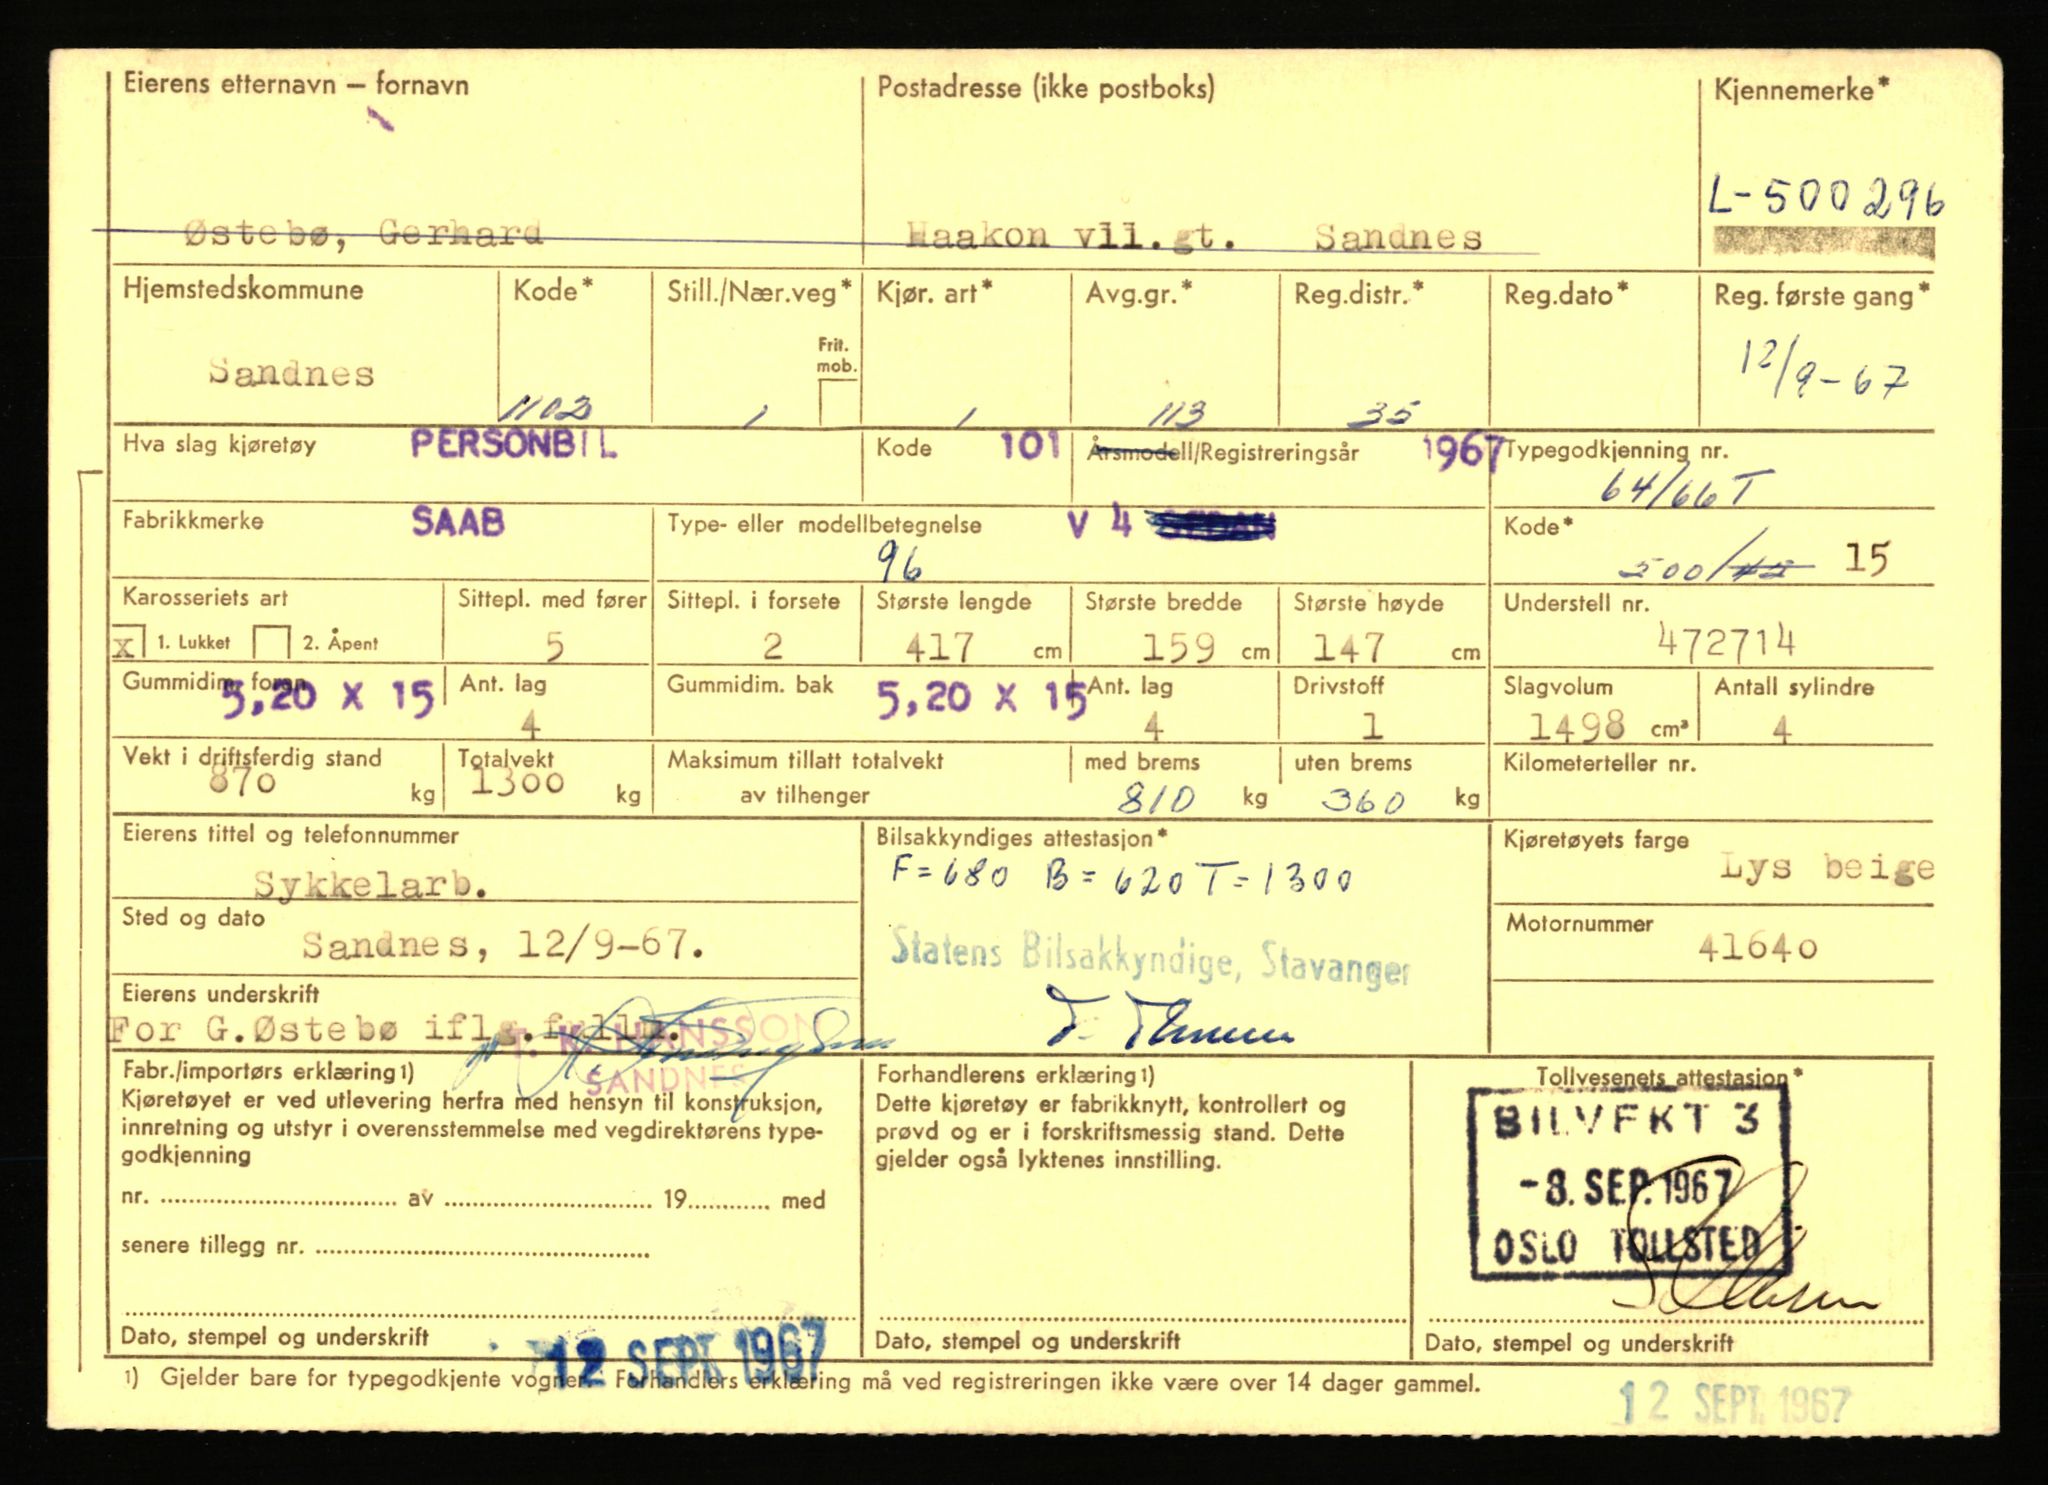 Eierens etternavn – fornavn Postadresse (ikke postboks) Kjennemerke*
L-500296
Østebø, Gerhard Haakon vii.gt. Sandnes
Hjemstedskommune Kode* Still./Nær.veg* Kjør. art* Avg.gr.* Reg.distr.* Reg.dato* Reg. første gang*
Frit. mob.
Sandnes 1102 1 1 113 35 12/9-67
Hva slag kjøretøy PERSONBIL Kode 101 Årsmodell/Registreringsår 1967 Typegodkjenning nr.
64/66 T
Fabrikkmerke SAAB Type- eller modellbetegnelse V 4 Kode*
96 500/ 15
Karosseriets art Sittepl. med fører Sittepl. i forsete Største lengde Største bredde Største høyde Understell nr.
X 1. Lukket 2. Åpent 5 2 417 cm 159 cm 147 cm 472714
Gummidim. foran 5,20 X 15 Ant. lag Gummidim. bak 5,20 X 15 Ant. lag Drivstoff Slagvolum Antall sylindre
4 4 1 1498 cm³ 4
Vekt i driftsferdig stand Totalvekt Maksimum tillatt totalvekt med brems uten brems Kilometerteller nr.
870 kg 1300 kg av tilhenger 810 kg 360 kg
Eierens tittel og telefonnummer Bilsakkyndiges attestasjon* Kjøretøyets farge
Sykkelarb. F=680 B=620 T=1300 Lys beige
Sted og dato Motornummer
Sandnes, 12/9-67. Statens Bilsakkyndige, Stavanger 41640
Eierens underskrift
For G.Østebø iflg.fullm. T. K. HANSSON
SANDNES
Fabr./importørs erklæring 1) Forhandlerens erklæring 1) Tollvesenets attestasjon*
Kjøretøyet er ved utlevering herfra med hensyn til konstruksjon, Dette kjøretøy er fabrikknytt, kontrollert og BILVEKT 3
innretning og utstyr i overensstemmelse med vegdirektørens type- prøvd og er i forskriftsmessig stand. Dette
godkjenning gjelder også lyktenes innstilling.
nr. av 19 med -8. SEP. 1967
senere tillegg nr. OSLO TOLLSTED
Dato, stempel og underskrift Dato, stempel og underskrift Dato, stempel og underskrift
12 SEPT. 1967
1) Gjelder bare for typegodkjente vogner. Forhandlers erklæring må ved registreringen ikke være over 14 dager gammel.
12 SEPT. 1967